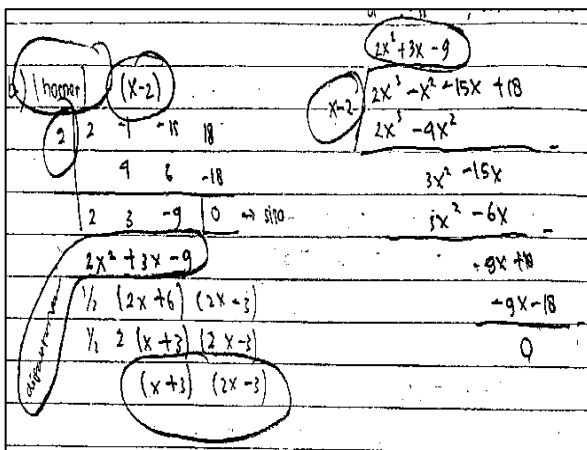 b) (horner) (x-2)
2 | 2 -1 -15 18
4 6 -18
2 3 -9 | 0 → sisa
2x² + 3x - 9
½ (2x+6) (2x-3)
½ 2 (x+3) (2x-3)
(x+3) (2x-3)
2x² + 3x - 9
x-2 | 2x³ - x² - 15x + 18
2x³ - 4x² -
3x² - 15x
3x² - 6x -
-9x + 18
-9x - 18
0